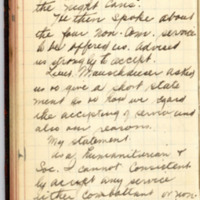 the night Cars.
He then spoke about
the four Non-Com. service
to be offered us. advised
us strongly to accept.
Lieut. asked
us to give a short state
ment as to how we regard
the accepting of service and
also our reasons.
My statement.
As a Humanitarian &
Soc. I cannot Consistent
ly accept any service
either combatant or non-